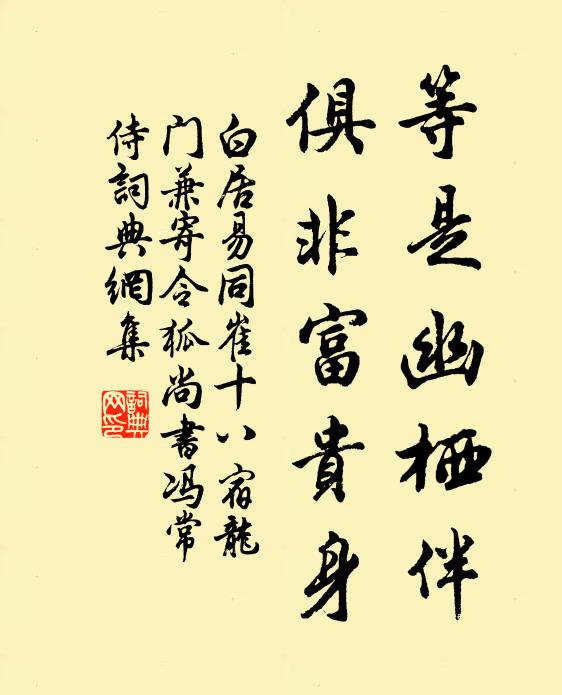 等是幽栖伴
俱非富貴身
白居易同崔十八宿龍
门兼寄令狐尚書冯常
侍詞典網集
詞典
网印